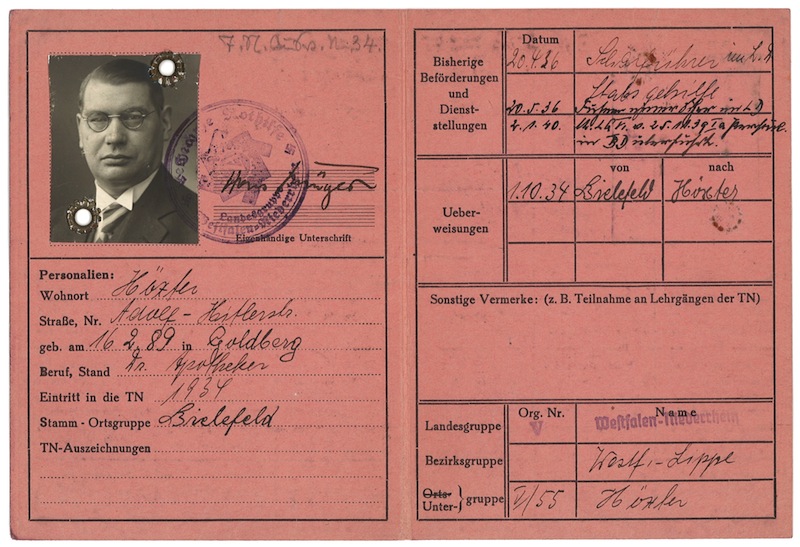 34.
Landesgruppe
Westfalen-Niederrhein
Eigenhändige Unterschrift
Personalien:
Wohnort Höxter
Straße, Nr. Adolf-Hitlerstr.
geb. am 16.2.89 in Goldberg
Beruf, Stand Dr. Apotheker
Eintritt in die TN 1934
Stamm-Ortsgruppe Bielefeld
TN-Auszeichnungen
Bisherige
Beförderungen
und
Dienst-
stellungen
Datum
20.4.36
20.5.36
2.1.40.
Ueber-
weisungen
von nach
1.10.34 Bielefeld Höxter
Sonstige Vermerke: (z. B. Teilnahme an Lehrgängen der TN)
Org. Nr. Name
Landesgruppe V Westfalen-Niederrhein
Bezirksgruppe Westf.-Lippe
Orts-
Unter- } gruppe V/55 Höxter